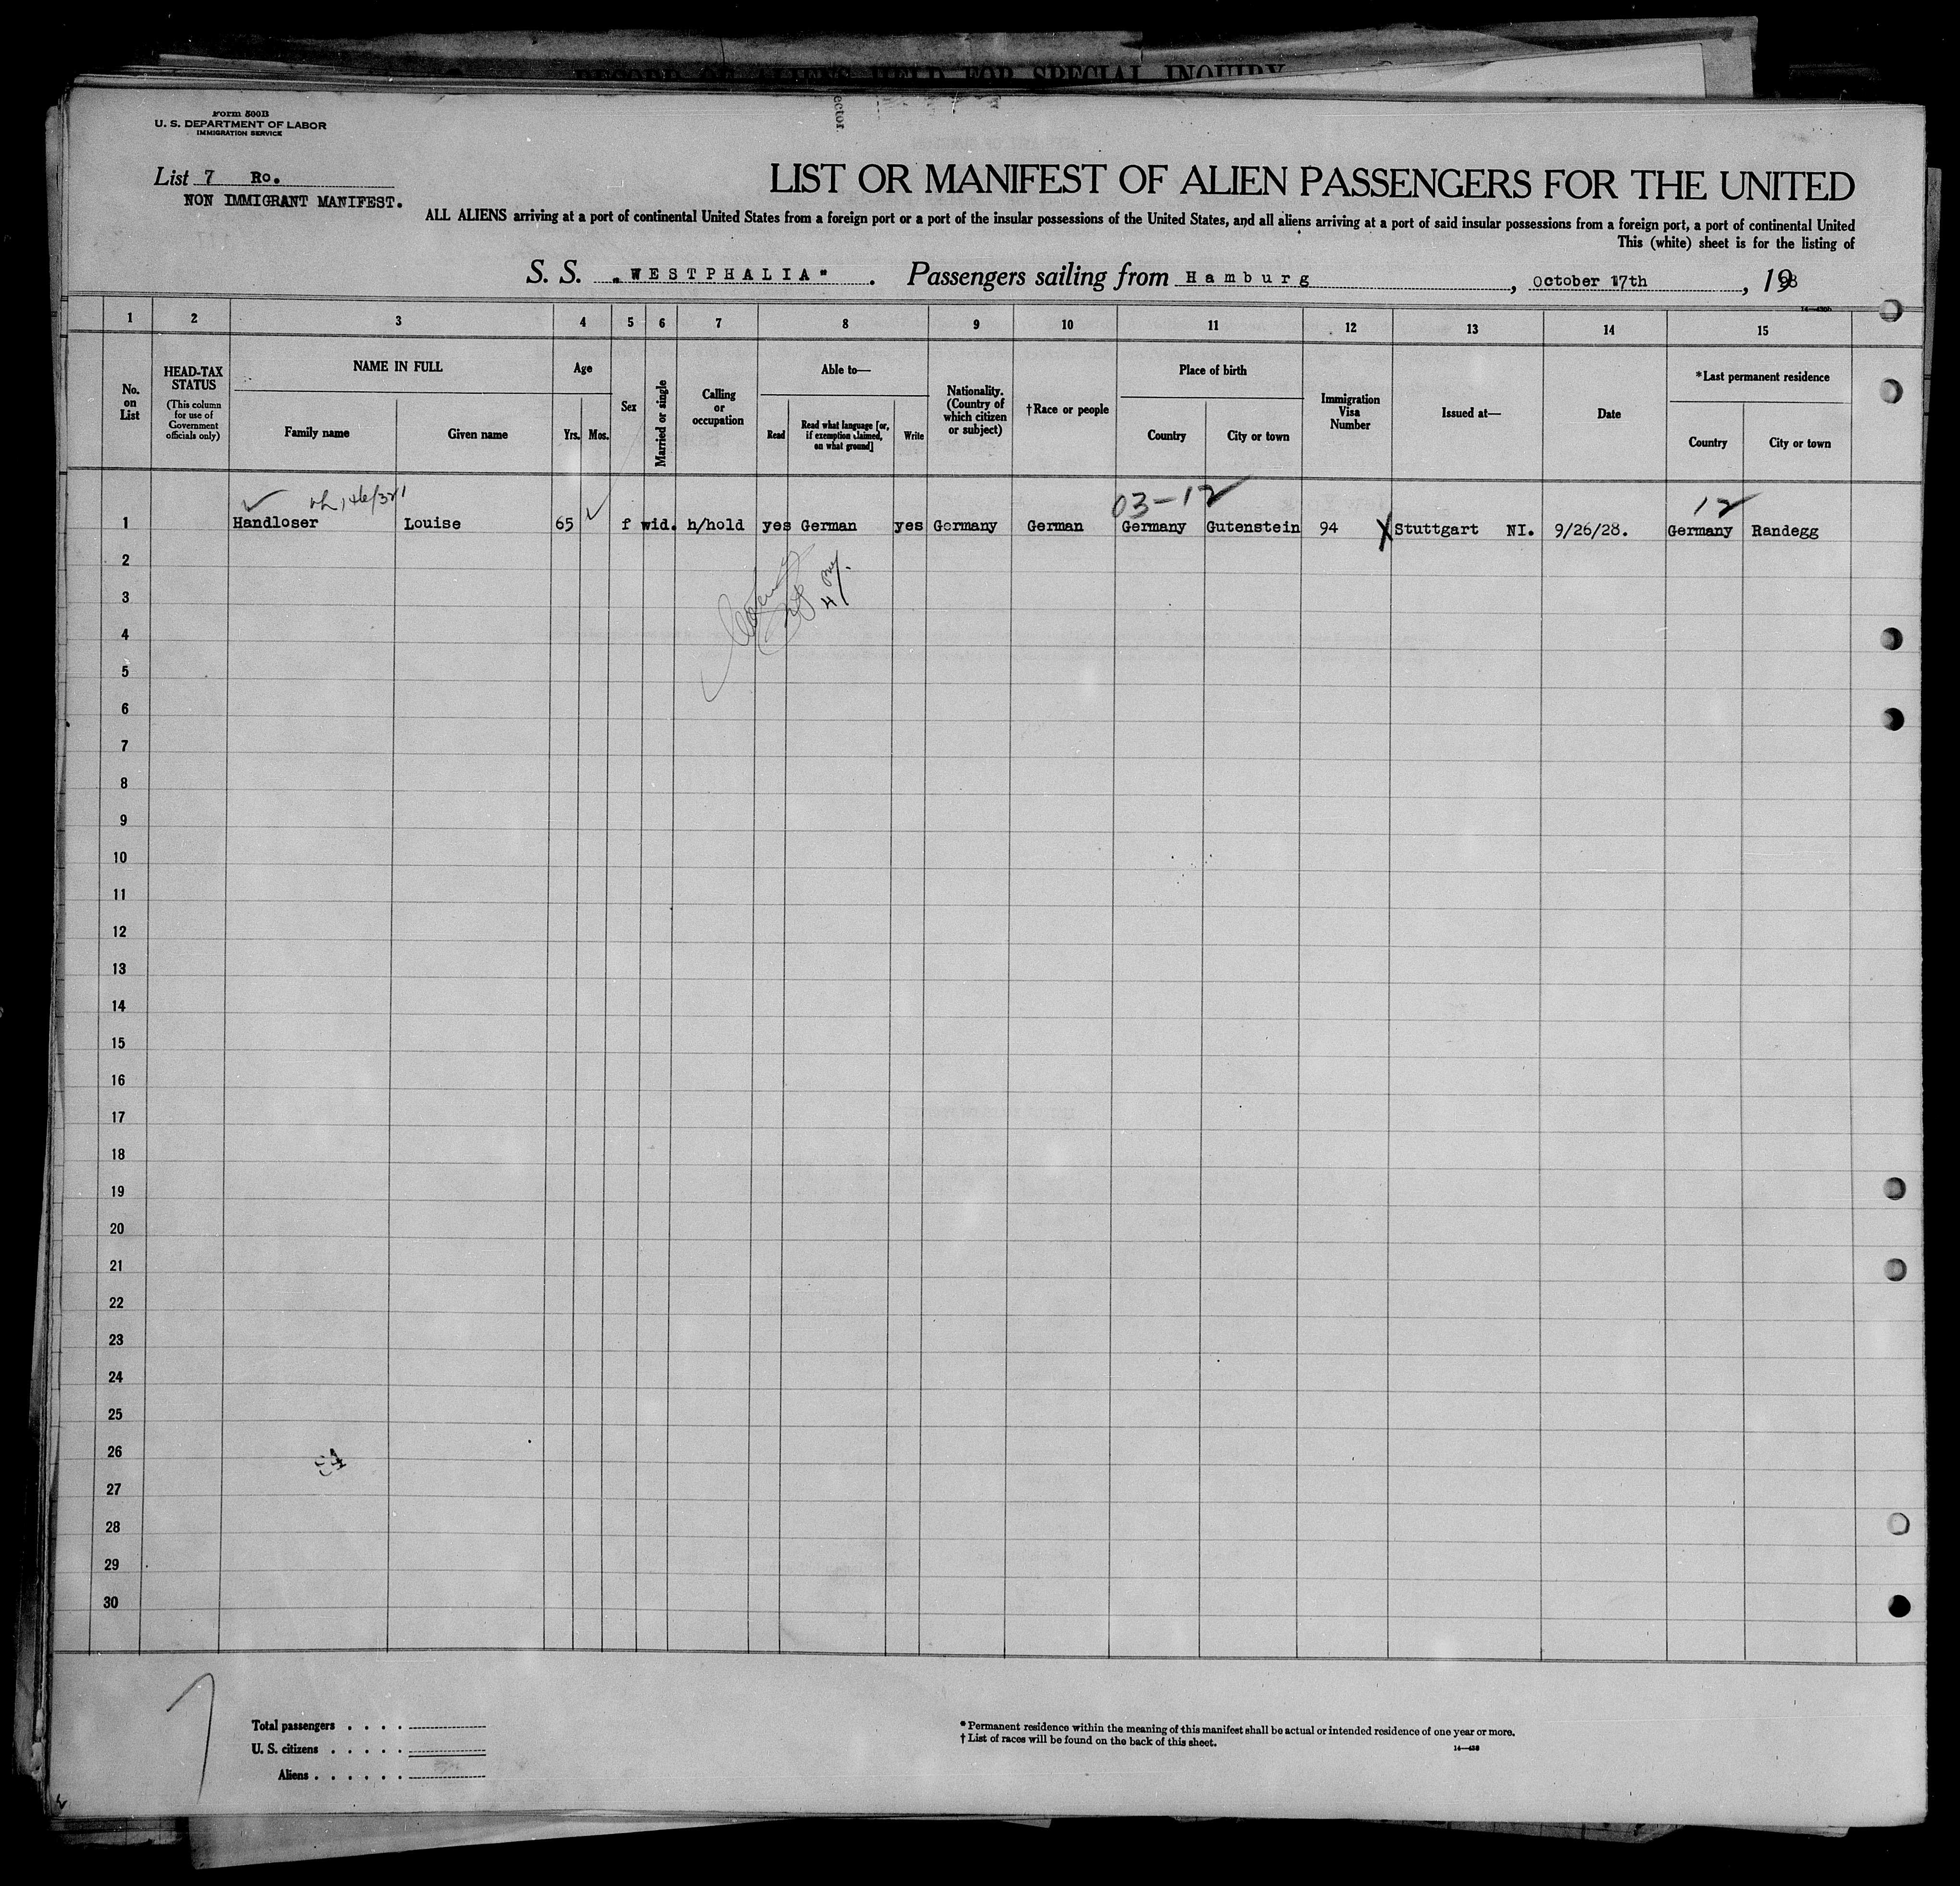 RECORD OF ALIENS HELD FOR SPECIAL INQUIRY
ector
Form 500B
U. S. DEPARTMENT OF LABOR
IMMIGRATION SERVICE
List 7 Ro.
NON IMMIGRANT MANIFEST.
LIST OR MANIFEST OF ALIEN PASSENGERS FOR THE UNITED
ALL ALIENS arriving at a port of continental United States from a foreign port or a port of the insular possessions of the United States, and all aliens arriving at a port of said insular possessions from a foreign port, a port of continental United
This (white) sheet is for the listing of
S. S. "WESTPHALIA". Passengers sailing from Hamburg, October 17th, 1928
14—430b
1 2 3 4 5 6 7 8 9 10 11 12 13 14 15
No. on List
HEAD-TAX STATUS
(This column for use of Government officials only)
NAME IN FULL
Family name Given name
Age
Yrs. Mos.
Sex
Married or single
Calling or occupation
Able to—
Read
Read what language [or, if exemption claimed, on what ground]
Write
Nationality. (Country of which citizen or subject)
†Race or people
Place of birth
Country City or town
Immigration Visa Number
Issued at—
Date
*Last permanent residence
Country City or town
03-12 12
1 Handloser Louise 65 f wid. h/hold yes German yes Germany German Germany Gutenstein 94 X Stuttgart NI. 9/26/28. Germany Randegg
2
3
4
5
6
7
8
9
10
11
12
13
14
15
16
17
18
19
20
21
22
23
24
25
26
27
28
29
30
7
Total passengers . . . .
U. S. citizens . . . . .
Aliens . . . . . .
* Permanent residence within the meaning of this manifest shall be actual or intended residence of one year or more.
† List of races will be found on the back of this sheet.
14—438